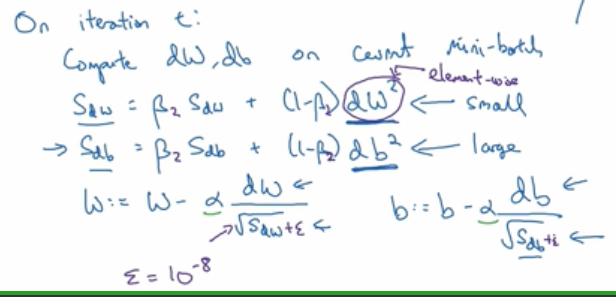 On iteration t:
Compute dW, db on current mini-batch
element-wise
S_dw = β₂ S_dw + (1-β₂) dW² ← small
→ S_db = β₂ S_db + (1-β₂) db² ← large
W := W - α dW / √S_dw+ε ← b := b - α db / √S_db+ε ←
ε = 10⁻⁸